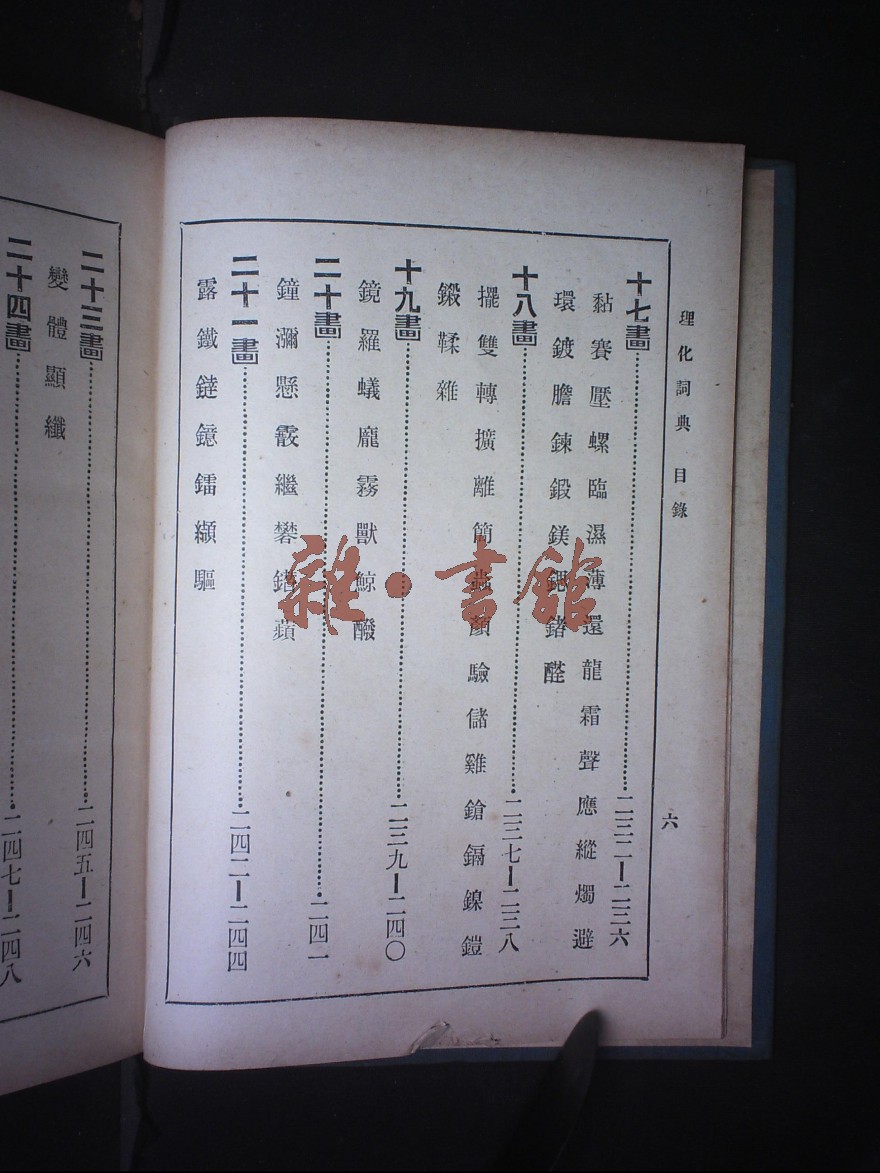 理化詞典 目錄
六
十七畫……二三二—二三六
黏賽壓螺臨濕薄還龍霜聲應縱燭避
環鍍膽鍊鍛鎂鍶鍺醛
十八畫……二三七—二三八
擺雙轉擴離簡蟲顏驗儲雞鎗鎘鎳鎧
鍛鞣雜
十九畫……二三九—二四〇
鏡羅蟻龐霧獸鯨醱
二十畫……二四一
鐘瀰懸霰繼礬蘋
二十一畫……二四二—二四四
露鐵鐽鐿鐳纈驅
二十三畫……二四五—二四六
變體顯纖
二十四畫……二四七—二四八
雜·書館